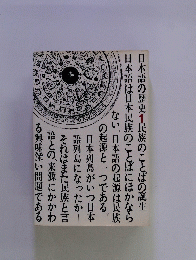 日本語の歴史1民族のことばの誕生
日本語は日本民族のことばにほかなら
ない、日本語の起源は民族
の起源と一つである
日本列島がいつ日本
語列島になったか!
それはまた民族と言
語との、来源にかかわ
る興味深い問題である